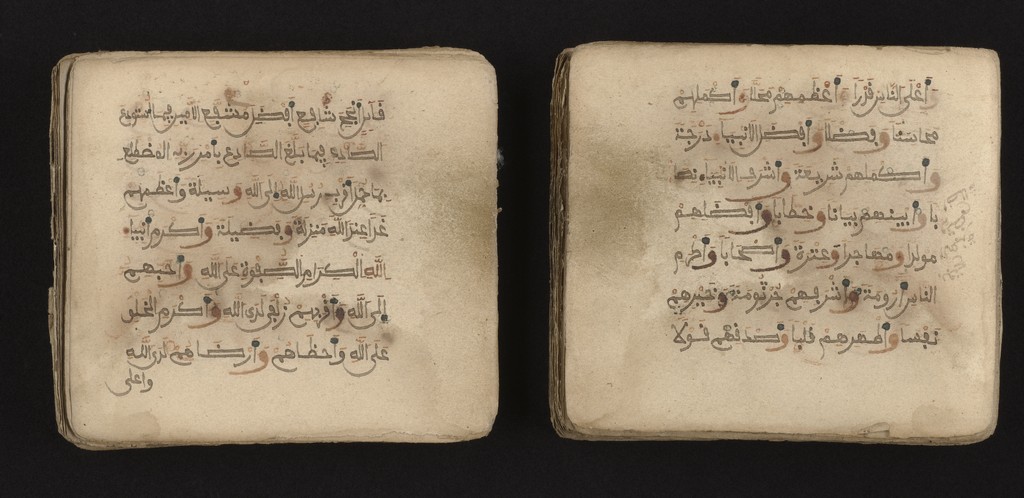 انجح شافع افضل مشفع الامين فيما استودع
الصادق فيما بلغ الصادع بامر ربه المضطلع
بما حمل اقرب رسل الله الى الله وسيلة واعظمهم
غدا عند الله منزلة وفضيلة واكرم انبياء
الله الكرام الصفوة على الله واحبهم
الى الله واقربهم زلفى لدى الله واكرم الخلق
على الله واحظاهم وارضاهم لدى الله
واعلى
وأعلى الناس قدرا وأعظمهم محلا وأكملهم
محاسنا وفضلا وأفضل الانبياء درجة
وأكملهم شريعة وأشرف الانبياء نصا
با وأبينهم بيانا وخطابا وأفضلهم
مولدا ومهاجرا وعترة وأصحابا وأكرم
الناس ارومة وأشرفهم جرثومة وخيرهم
نفسا وأطهرهم قلبا وأصدقهم قولا